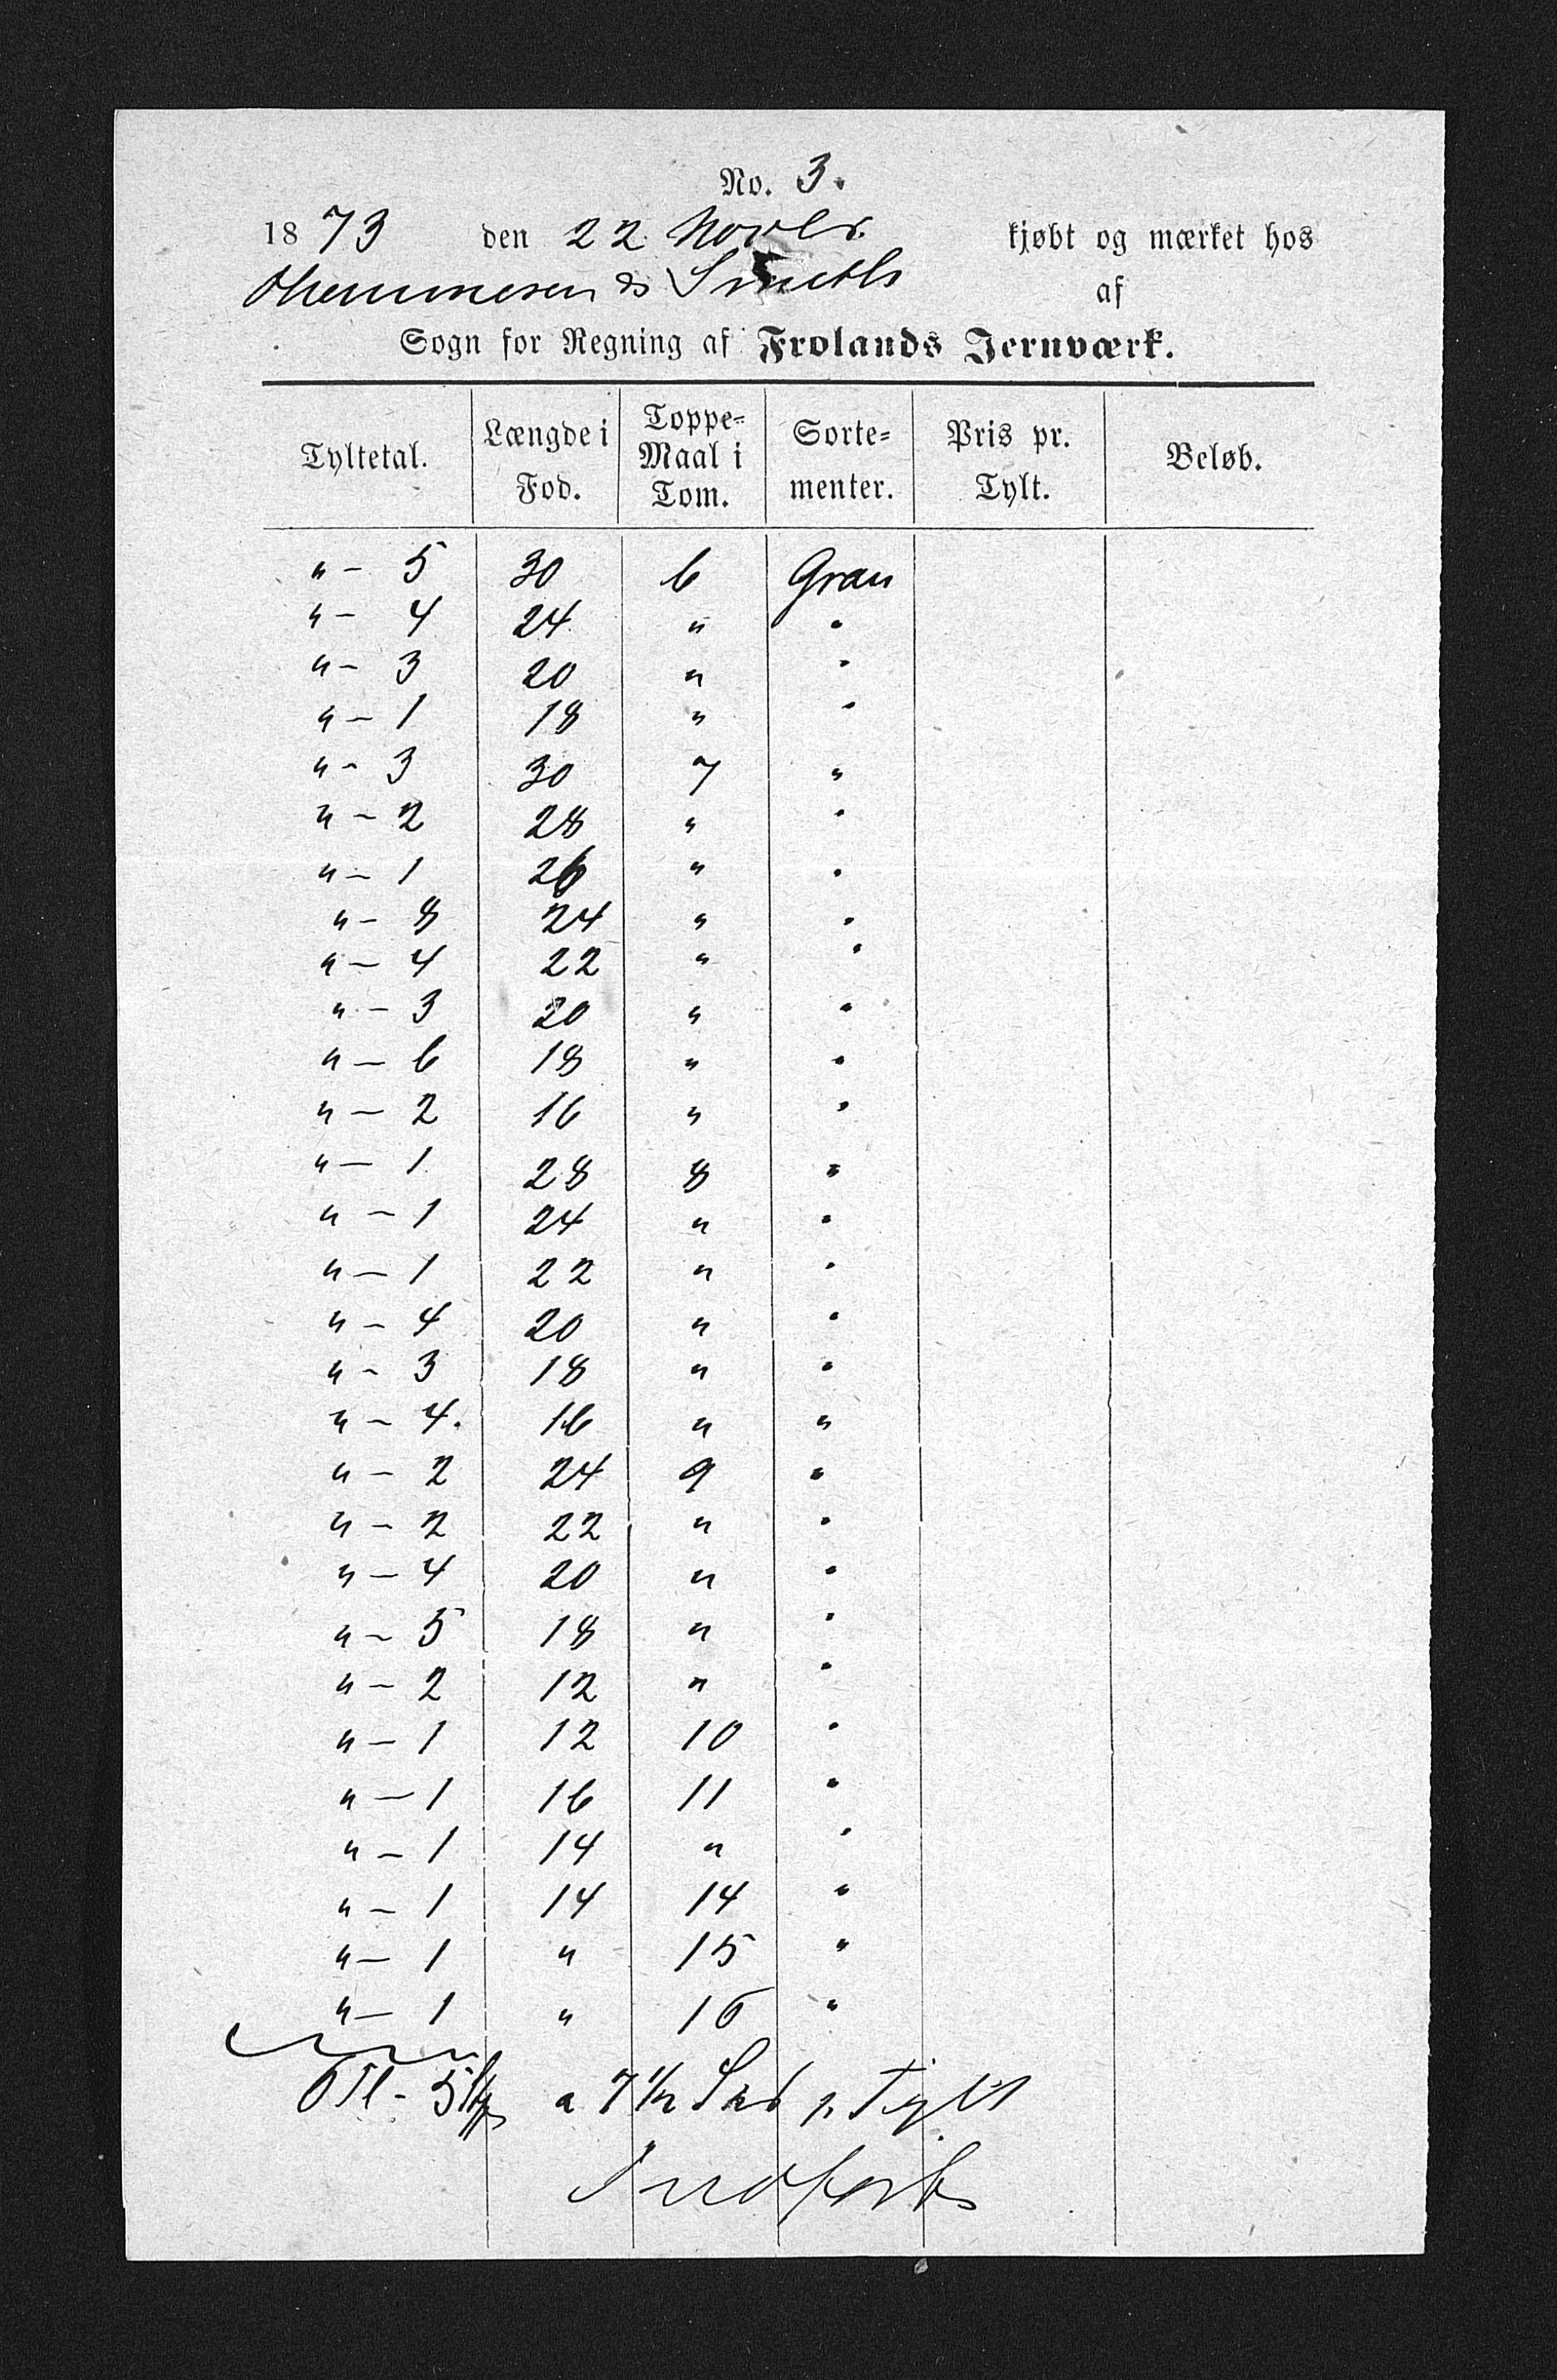 No. 3.
1873 den 22 Novbr. kjøbt og mærket hos
& Smith af
Sogn for Regning af Frolands Jernværk.
Tyltetal. Længde i Fod. Toppe-Maal i Tom. Sorte-menter. Pris pr. Tylt. Beløb.
" - 5 30 6 Gran
" - 4 24 " "
" - 3 20 " "
" - 1 18 " "
" - 3 30 7 "
" - 2 28 " "
" - 1 26 " "
" - 8 24 " "
" - 4 22 " "
" - 3 20 " "
" - 6 18 " "
" - 2 16 " "
" - 1 28 8 "
" - 1 24 " "
" - 1 22 " "
" - 4 20 " "
" - 3 18 " "
" - 4. 16 " "
" - 2 24 9 "
" - 2 22 " "
" - 4 20 " "
" - 5 18 " "
" - 2 12 " "
" - 1 12 10 "
" - 1 16 11 "
" - 1 14 " "
" - 1 14 14 "
" - 1 " 15 "
" - 1 " 16 "
6 Tl - 5 a 7 1/2 p. Tylt
Indført